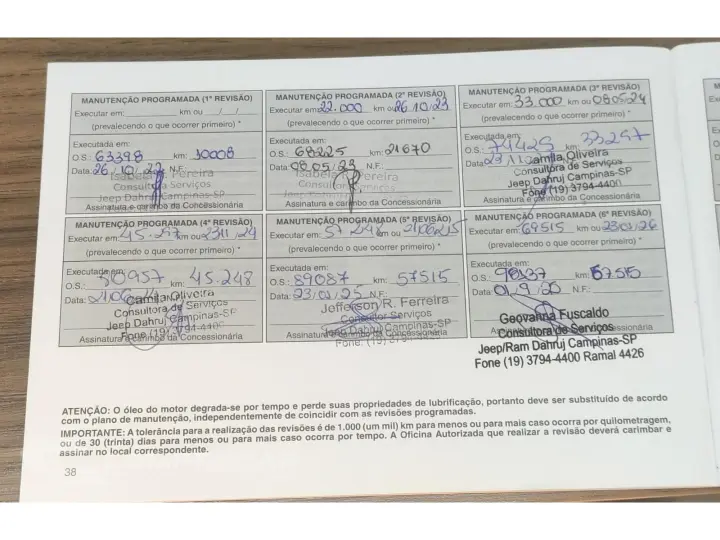 MANUTENÇÃO PROGRAMADA (1ª REVISÃO)
Executar em: km ou / /
(prevalecendo o que ocorrer primeiro) *
Executada em:
O.S.: 63398 km: 10008
Data: 26/10/22 N.F.
Isabela Pereira
Consultora Serviços
Jeep Dahruj Campinas
Assinatura e carimbo da Concessionária
MANUTENÇÃO PROGRAMADA (2ª REVISÃO)
Executar em: 22.000 km ou 26.10.23
(prevalecendo o que ocorrer primeiro) *
Executada em:
O.S.: 68225 km: 21670
Data: 08.05/23 N.F.
Isabela Pereira
Assinatura e carimbo da Concessionária
MANUTENÇÃO PROGRAMADA (3ª REVISÃO)
Executar em: 33.000 km ou 08.05/24
(prevalecendo o que ocorrer primeiro) *
Executada em:
O.S.: 74425 km: 33257
Data:
Camila Oliveira
Consultora de Serviços
Jeep Dahruj Campinas-SP
Fone (19) 3794-4400
Assinatura e carimbo da Concessionária
MANUTENÇÃO PROGRAMADA (4ª REVISÃO)
Executar em: 45.257 km ou 23/11/24
(prevalecendo o que ocorrer primeiro) *
Executada em:
O.S.: 80957 km: 45.248
Data:
Camila Oliveira
Consultora de Serviços
Jeep Dahruj Campinas-SP
Fone (19) 3794-4400
Assinatura e carimbo da Concessionária
MANUTENÇÃO PROGRAMADA (5ª REVISÃO)
Executar em: 57.248 km ou
(prevalecendo o que ocorrer primeiro) *
Executada em:
O.S.: 89087 km: 57515
Data: 23/01/25 N.F.
Jefferson R. Ferreira
Consultor Serviços
Jeep Dahruj Campinas-SP
Assinatura e carimbo da Concessionária
MANUTENÇÃO PROGRAMADA (6ª REVISÃO)
Executar em: 69515 km ou 23/01/26
(prevalecendo o que ocorrer primeiro) *
Executada em:
O.S.: km: 67515
Data: N.F.:
Geovanna Fuscaldo
Consultora de Serviços
Assinatura e carimbo da Concessionária
Jeep/Ram Dahruj Campinas-SP
Fone (19) 3794-4400 Ramal 4426
ATENÇÃO: O óleo do motor degrada-se por tempo e perde suas propriedades de lubrificação, portanto deve ser substituído de acordo
com o plano de manutenção, independentemente de coincidir com as revisões programadas.
IMPORTANTE: A tolerância para a realização das revisões é de 1.000 (um mil) km para menos ou para mais caso ocorra por quilometragem,
ou de 30 (trinta) dias para menos ou para mais caso ocorra por tempo. A Oficina Autorizada que realizar a revisão deverá carimbar e
assinar no local correspondente.
38